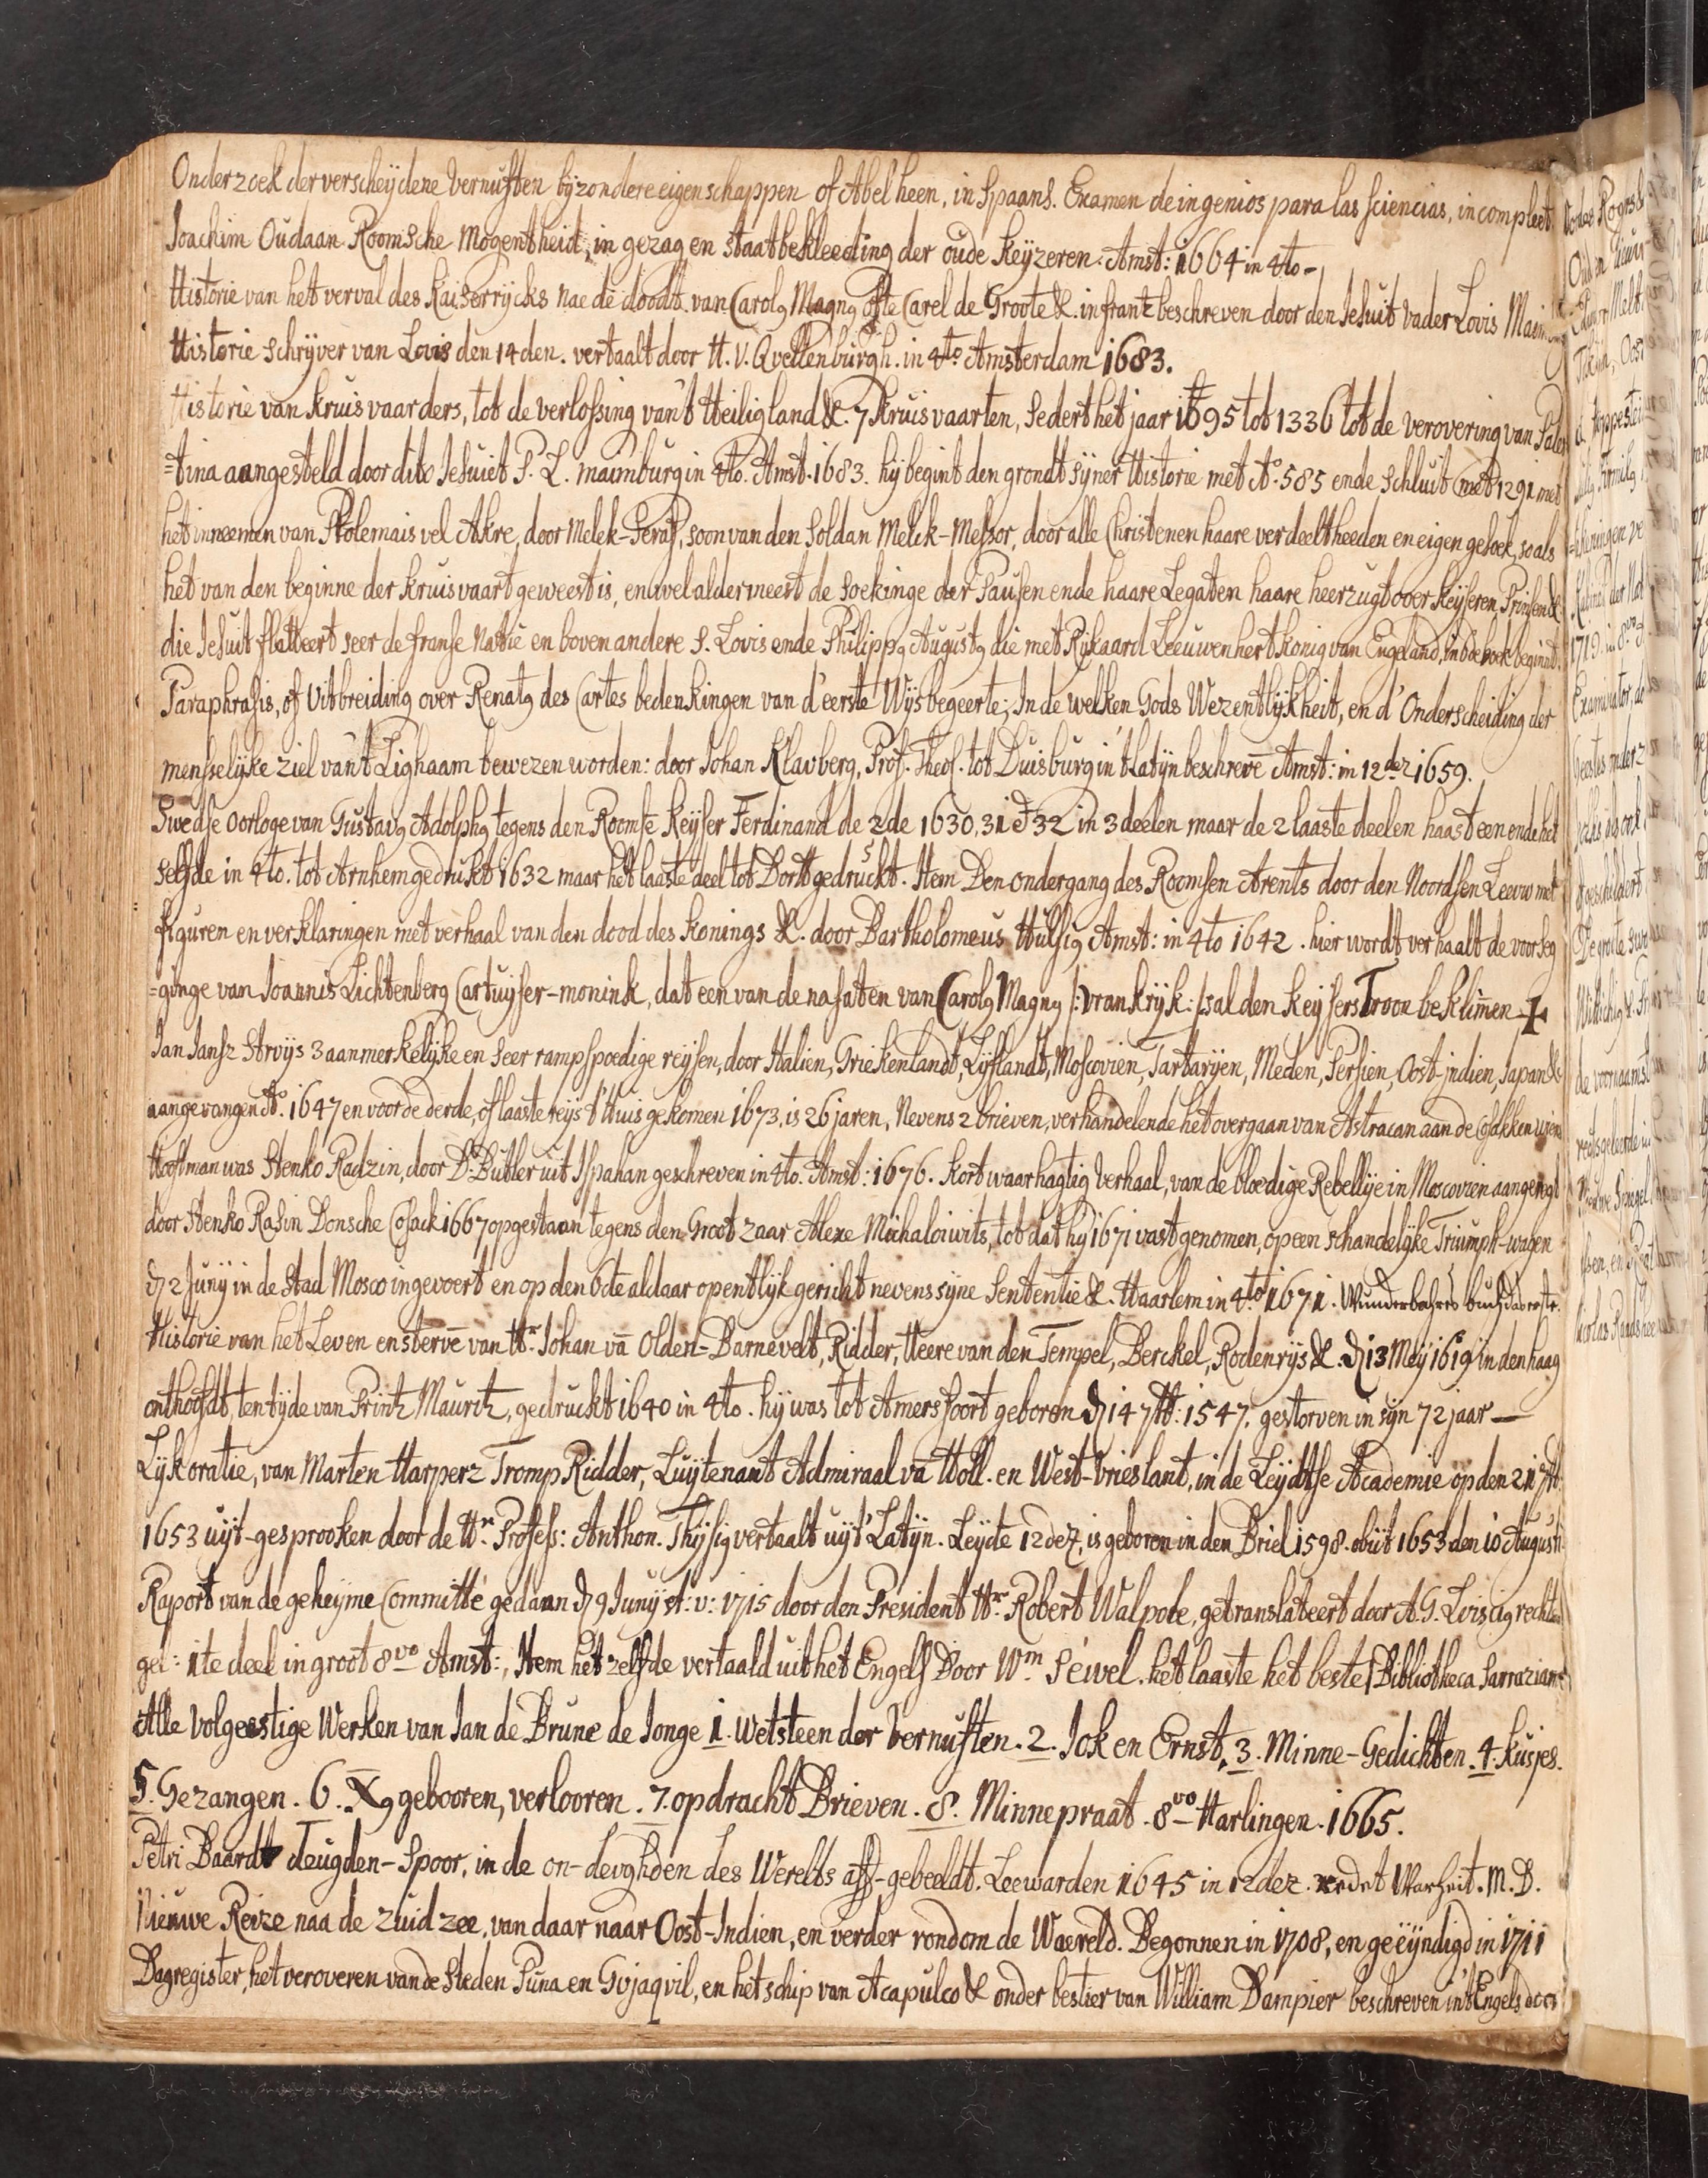 Onderzoek der verscheijdene Vernuften bijzondere eigenschappen of Abel heen, in Spaans. Examen de ingenios para las sciencias, incompleet.
Joachim Oudaan Roomsche Mogentheid, in gezag en staatbekleeding der oude Keijzeren. Amst: 1664 in 4to-
Historie van het verval des Kaiserrijcks nae de doodt van Carolg Magng ofte Carel de Groote &. in frantz beschreven door den Jesuit Vader Lovis Maim
Historie schrijver van Lovis den 14den. vertaalt door H. V. Qvellenburgh. in 4to Amsterdam 1683.
Historie van Kruisvaarders, tot de verlossing van't Heilig land &. 7 Kruisvaarten, sedert het jaar 1095 tot 1336 tot de verovering van Pales
=tina aangesteld door dito Jesuiet P. L. maimburg in 4to. Amst. 1683. hij begint den grondt sijner Historie met Ao. 585 ende schluit met 1291 met
het inneemen van Ptolemais vel Akre, door Melek-Seraf, soon van den Soldan Melek-Messor, door alle Christenen haare verdeeltheeden en eigen gesoek, so als
het van den beginne der Kruisvaart geweest is, en wel aldermeest de soekinge der Pausen ende haare Legaten haare heerzugt over Keijseren, Prinsen &
die Jesuit flatteert seer de franse Natie en boven andere S. Lovis ende Philippg Augustg die met Rikaard Leeuwenhert Konig van Engeland, in 5de boek begint.
Paraphrasis, of Uitbreiding over Renatg des Cartes bedenkingen van d'eerste Wijsbegeerte; In de welken Gods Wezentlijkheit, en d'Onderscheiding der
mensselijke ziel van't Lighaam bewezen worden: door Johan Klavberg, Prof. Theol. tot Duisburg in't Latijn beschreve Amst: in 12dez 1659.
Swedse Oorloge van Gustavg Adolphg tegens den Roomse Keijser Ferdinand de 2de 1630, 31 & 32 in 3 deelen maar de 2 laaste deelen haast een ende het
selfde in 4to. tot Arnhem gedrukt 1632 maar het laaste deel tot Dortt gedruckt. Item Den ondergang des Roomsen Arents door den Noordsen Leeuw met
figuren en verklaringen met verhaal van den dood des Konings &. door Bartholomeus Hulsig Amst: in 4to 1642. hier wordt verhaalt de voorseg
=ginge van Joannis Lichtenberg Cartuijser-monink, dat een van de nasaten van Carolg Magng /: vrankrijk :/ sal den Keijsers Troon beklimen +
Jan Jansz Strvijs 3 aanmerkelijke en seer rampspoedige reijsen, door Italien, Griekenlandt, Lijflandt, Moscovien, Tartarijen, Meden, Persien, Oost-jndien, Japan &
aangevangen Ao. 1647 en voor de derde, of laaste reijs t'Huis gekomen 1673, is 26 jaren, Nevens 2 brieven, verhandelende het overgaan van Astracan aan de Cosakken wiens
Hooftman was Stenko Radzin, door D. Butler uit Ispahan geschreven in 4to. Amst: 1676. Kort waarhagtig Verhaal, van de bloedige Rebellije in Moscovien aangerigt
door Stenko Rasin Donsche Cosack 1667 opgestaan tegens den Groot zaar Alexe Michaloiwits, tot dat hij 1671 vast genomen, op een schandelijke Triumph-wagen
d 2 Junij in de Stad Mosco ingevoert en op den 6de aldaar opentlijk gericht nevens sijne Sententie &. Haarlem in 4to 1671. Wunderbahres buch das erste.
Historie van het Leven en sterve van Hr. Johan va Olden-Barnevelt, Ridder, Heere van den Tempel, Berckel, Rodenrijs &. d 13 Meij 1619 in den haag
onthoofdt, ten tijde van Printz Mauritz, gedruckt 1640 in 4to. hij was tot Amersfoort geboren d 14 7tt: 1547. gestorven in sijn 72 jaar —
Lijk oratie, van Marten Harperz Tromp Ridder, Luijtenant Admiraal va Holl. en West-vrieslant, in de Leijdtse Academie op den 21
1653 uijt-gesprooken door de Hr. Profess: Anthon. Thijsig vertaalt uijt 't Latijn. Leijde 12dez, is geboren in den Briel 1598. obiit 1653 den 10 Augusti
Raport van de geheijme Committé gedaan d 9 Junij st: v: 1715 door den President Hr. Robert Walpole, getranslateert door A. G. Lviscig rechten
gel: 1te deel in groot 8vo Amst:, Item het zelfde vertaald uit het Engels Door Wm Séwel. het laaste het beste / Bibliotheca Sarraziana
Alle Volgeestige Werken van Jan de Brune de Jonge 1. Wetsteen der Vernuften. 2. Jok en Ernst, 3. Minne-Gedichten. 4. Kusjes.
5. Gezangen. 6. Xg gebooren, verlooren. 7. opdracht Brieven. 8. Minnepraat. 8vo Harlingen. 1665.
Petri Baardt Deugden-Spoor, in de on-devghden des Werelts aff-gebeeldt. Leewarden 1645 in 12dez. redet Warheit. M. D.
Nieuwe Reize naa de Zuid zee, van daar naar Oost-Indien, en verder rondom de Waereld. Begonnen in 1708, en geëijndigd in 1711
Dagregister, het veroveren van de Steden Puna en Gvjaqvil, en het schip van Acapulco & onder bestier van William Dampier beschreven in't Engels door